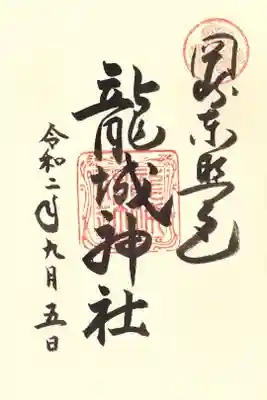 岡崎東照宮
龍城神社
令和二年九月五日